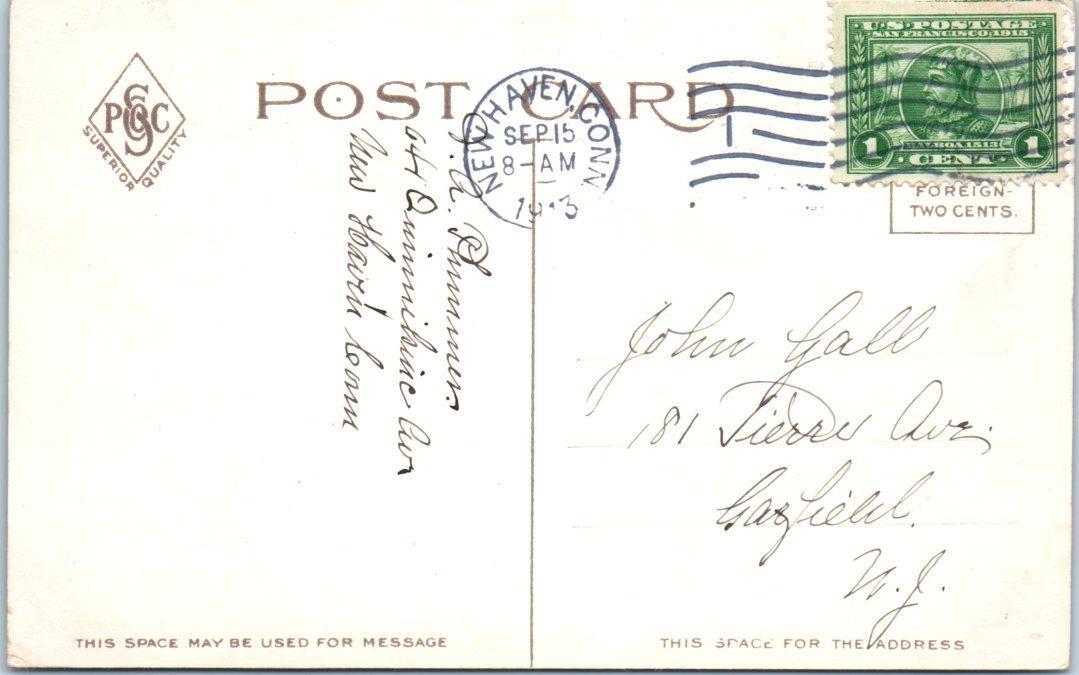 PSGC
SUPERIOR QUALITY
POST CARD
NEW HAVEN, CONN.
SEP 15
8-AM
1913
1
U.S. POSTAGE
SAN FRANCISCO 1915
BALBOA 1513
1 CENT 1
FOREIGN-
TWO CENTS.
Plummer.
Ave
New Haven Conn
John Gall
181 Pierre Ave.
Garfield.
N.J.
THIS SPACE MAY BE USED FOR MESSAGE
THIS SPACE FOR THE ADDRESS